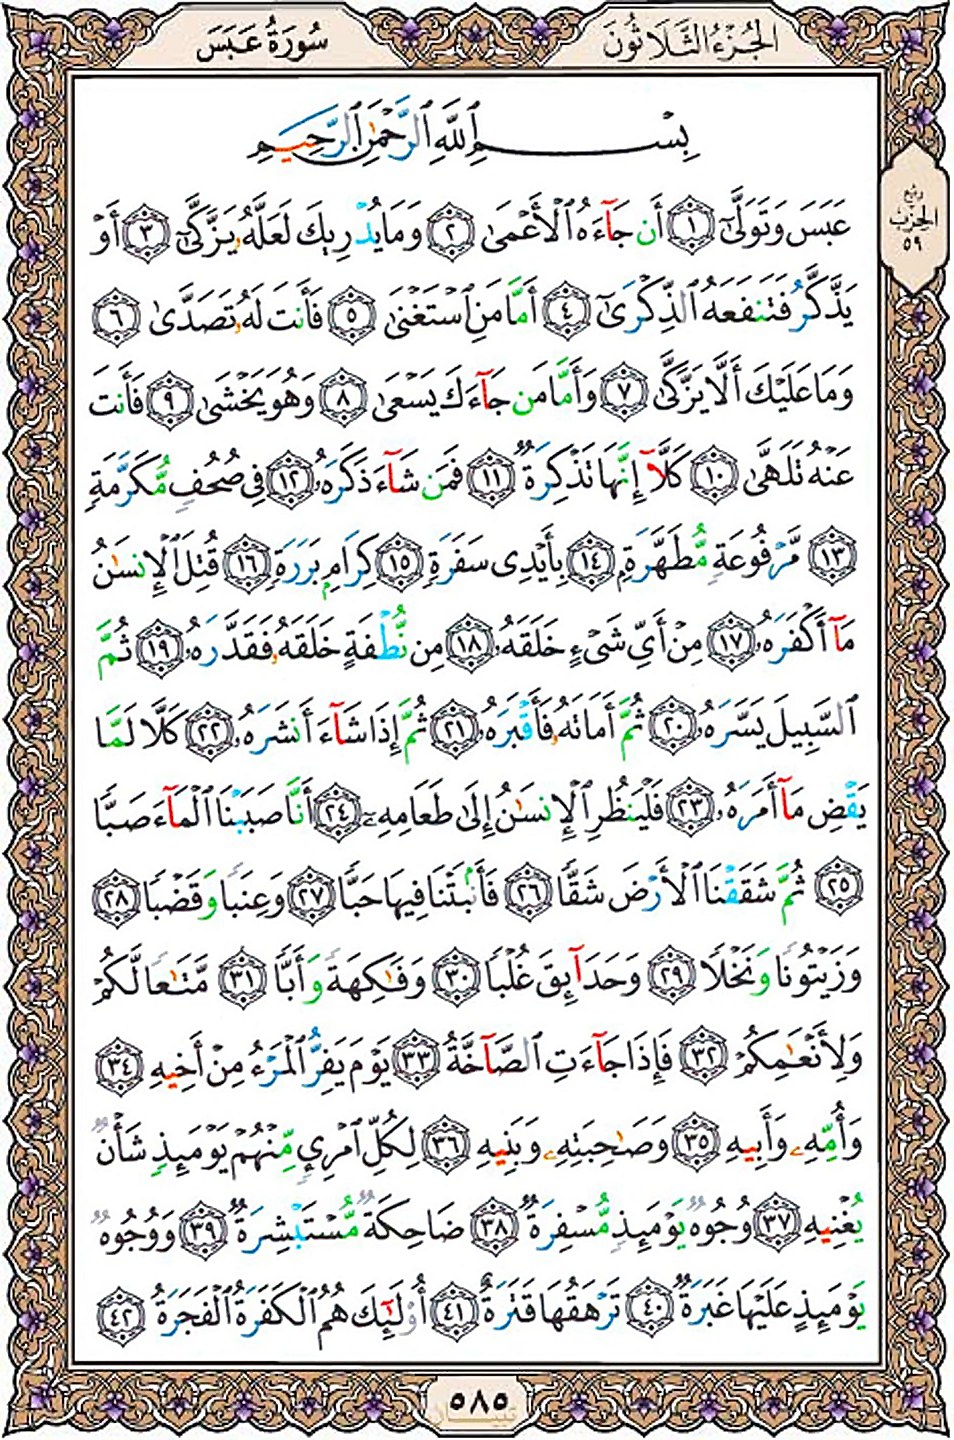 الجُزْءُ الثَّلَاثُونَ
سُورَةُ عَبَسَ
رُبع
الحِزْب
٥٩
بِسْمِ ٱللَّهِ ٱلرَّحْمَٰنِ ٱلرَّحِيمِ
عَبَسَ وَتَوَلَّىٰٓ ١ أَن جَآءَهُ ٱلْأَعْمَىٰ ٢ وَمَا يُدْرِيكَ لَعَلَّهُۥ يَزَّكَّىٰٓ ٣ أَوْ
يَذَّكَّرُ فَتَنفَعَهُ ٱلذِّكْرَىٰٓ ٤ أَمَّا مَنِ ٱسْتَغْنَىٰ ٥ فَأَنتَ لَهُۥ تَصَدَّىٰ ٦
وَمَا عَلَيْكَ أَلَّا يَزَّكَّىٰ ٧ وَأَمَّا مَن جَآءَكَ يَسْعَىٰ ٨ وَهُوَ يَخْشَىٰ ٩ فَأَنتَ
عَنْهُ تَلَهَّىٰ ١٠ كَلَّآ إِنَّهَا تَذْكِرَةٌ ١١ فَمَن شَآءَ ذَكَرَهُۥ ١٢ فِى صُحُفٍ مُّكَرَّمَةٍ
١٣ مَّرْفُوعَةٍ مُّطَهَّرَةٍۭ ١٤ بِأَيْدِى سَفَرَةٍ ١٥ كِرَامٍۭ بَرَرَةٍ ١٦ قُتِلَ ٱلْإِنسَٰنُ
مَآ أَكْفَرَهُۥ ١٧ مِنْ أَىِّ شَىْءٍ خَلَقَهُۥ ١٨ مِن نُّطْفَةٍ خَلَقَهُۥ فَقَدَّرَهُۥ ١٩ ثُمَّ
ٱلسَّبِيلَ يَسَّرَهُۥ ٢٠ ثُمَّ أَمَاتَهُۥ فَأَقْبَرَهُۥ ٢١ ثُمَّ إِذَا شَآءَ أَنشَرَهُۥ ٢٢ كَلَّا لَمَّا
يَقْضِ مَآ أَمَرَهُۥ ٢٣ فَلْيَنظُرِ ٱلْإِنسَٰنُ إِلَىٰ طَعَامِهِۦٓ ٢٤ أَنَّا صَبَبْنَا ٱلْمَآءَ صَبًّا
٢٥ ثُمَّ شَقَقْنَا ٱلْأَرْضَ شَقًّا ٢٦ فَأَنۢبَتْنَا فِيهَا حَبًّا ٢٧ وَعِنَبًا وَقَضْبًا ٢٨
وَزَيْتُونًا وَنَخْلًا ٢٩ وَحَدَآئِقَ غُلْبًا ٣٠ وَفَٰكِهَةً وَأَبًّا ٣١ مَّتَٰعًا لَّكُمْ
وَلِأَنْعَٰمِكُمْ ٣٢ فَإِذَا جَآءَتِ ٱلصَّآخَّةُ ٣٣ يَوْمَ يَفِرُّ ٱلْمَرْءُ مِنْ أَخِيهِ ٣٤
وَأُمِّهِۦ وَأَبِيهِ ٣٥ وَصَٰحِبَتِهِۦ وَبَنِيهِ ٣٦ لِكُلِّ ٱمْرِئٍ مِّنْهُمْ يَوْمَئِذٍ شَأْنٌ
يُغْنِيهِ ٣٧ وُجُوهٌ يَوْمَئِذٍ مُّسْفِرَةٌ ٣٨ ضَاحِكَةٌ مُّسْتَبْشِرَةٌ ٣٩ وَوُجُوهٌ
يَوْمَئِذٍ عَلَيْهَا غَبَرَةٌ ٤٠ تَرْهَقُهَا قَتَرَةٌ ٤١ أُو۟لَٰٓئِكَ هُمُ ٱلْكَفَرَةُ ٱلْفَجَرَةُ ٤٢
٥٨٥
تبيان